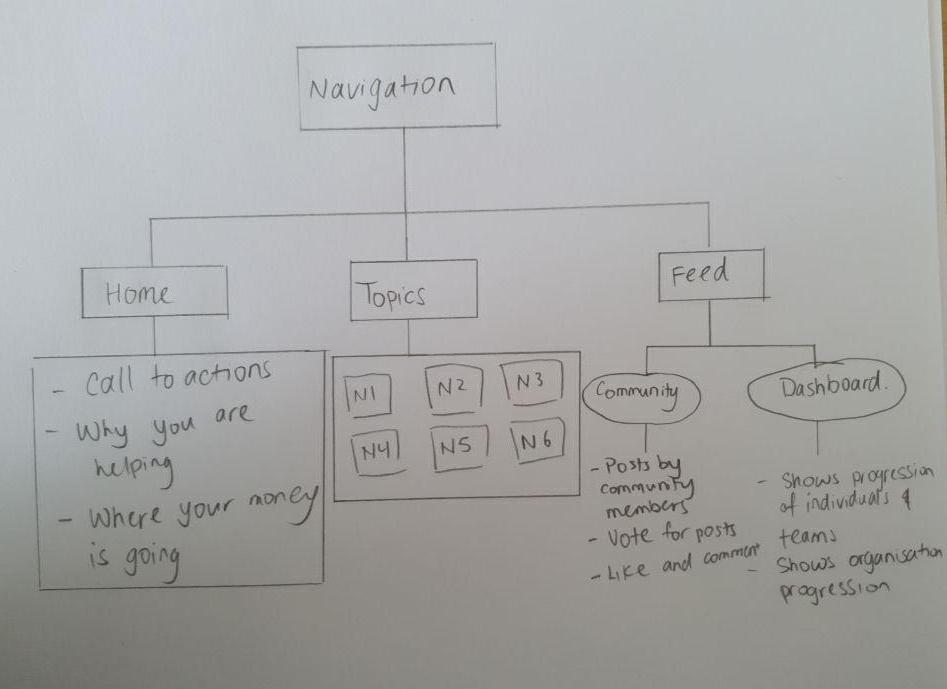 Navigation
Home
Topics
Feed
- Call to actions
- Why you are
helping
- Where your money
is going
N1 N2 N3
N4 N5 N6
Community
- Posts by
community
members
- Vote for posts
- Like and comment
Dashboard.
- Shows progression
of individuals &
teams
- Shows organisation
progression